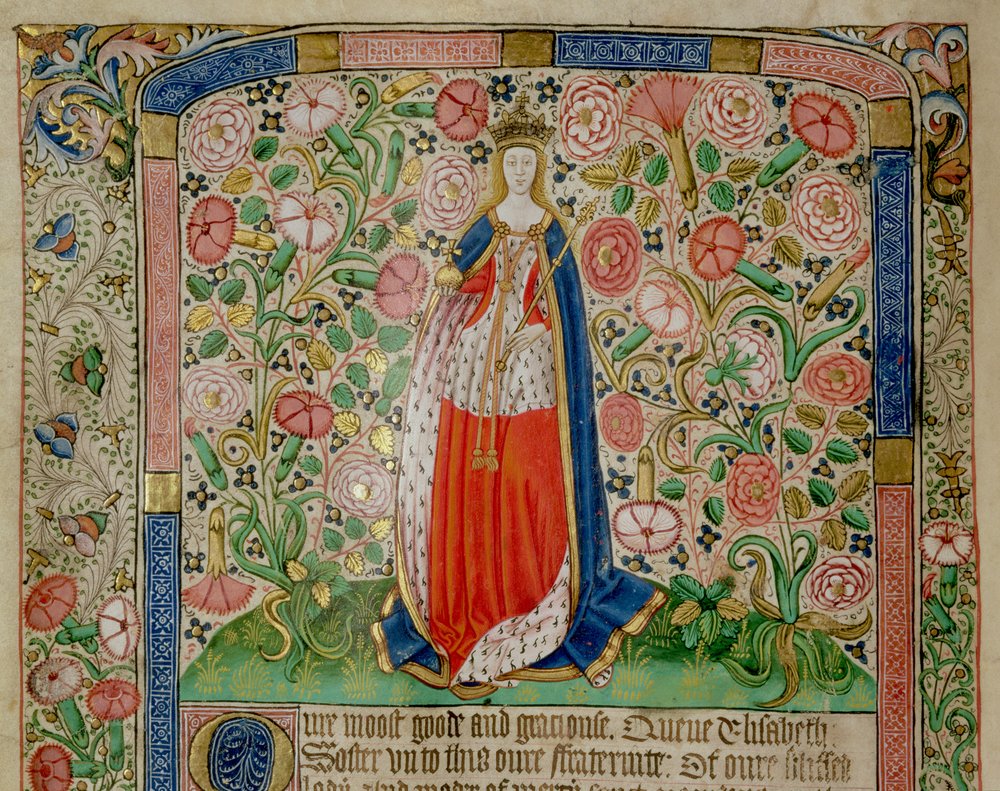 Oure moost goode and graciouse. Queue Elisabeth
Soster vn to this oure ffraternite: Of oure blissed
lady And moder of mercy sanct